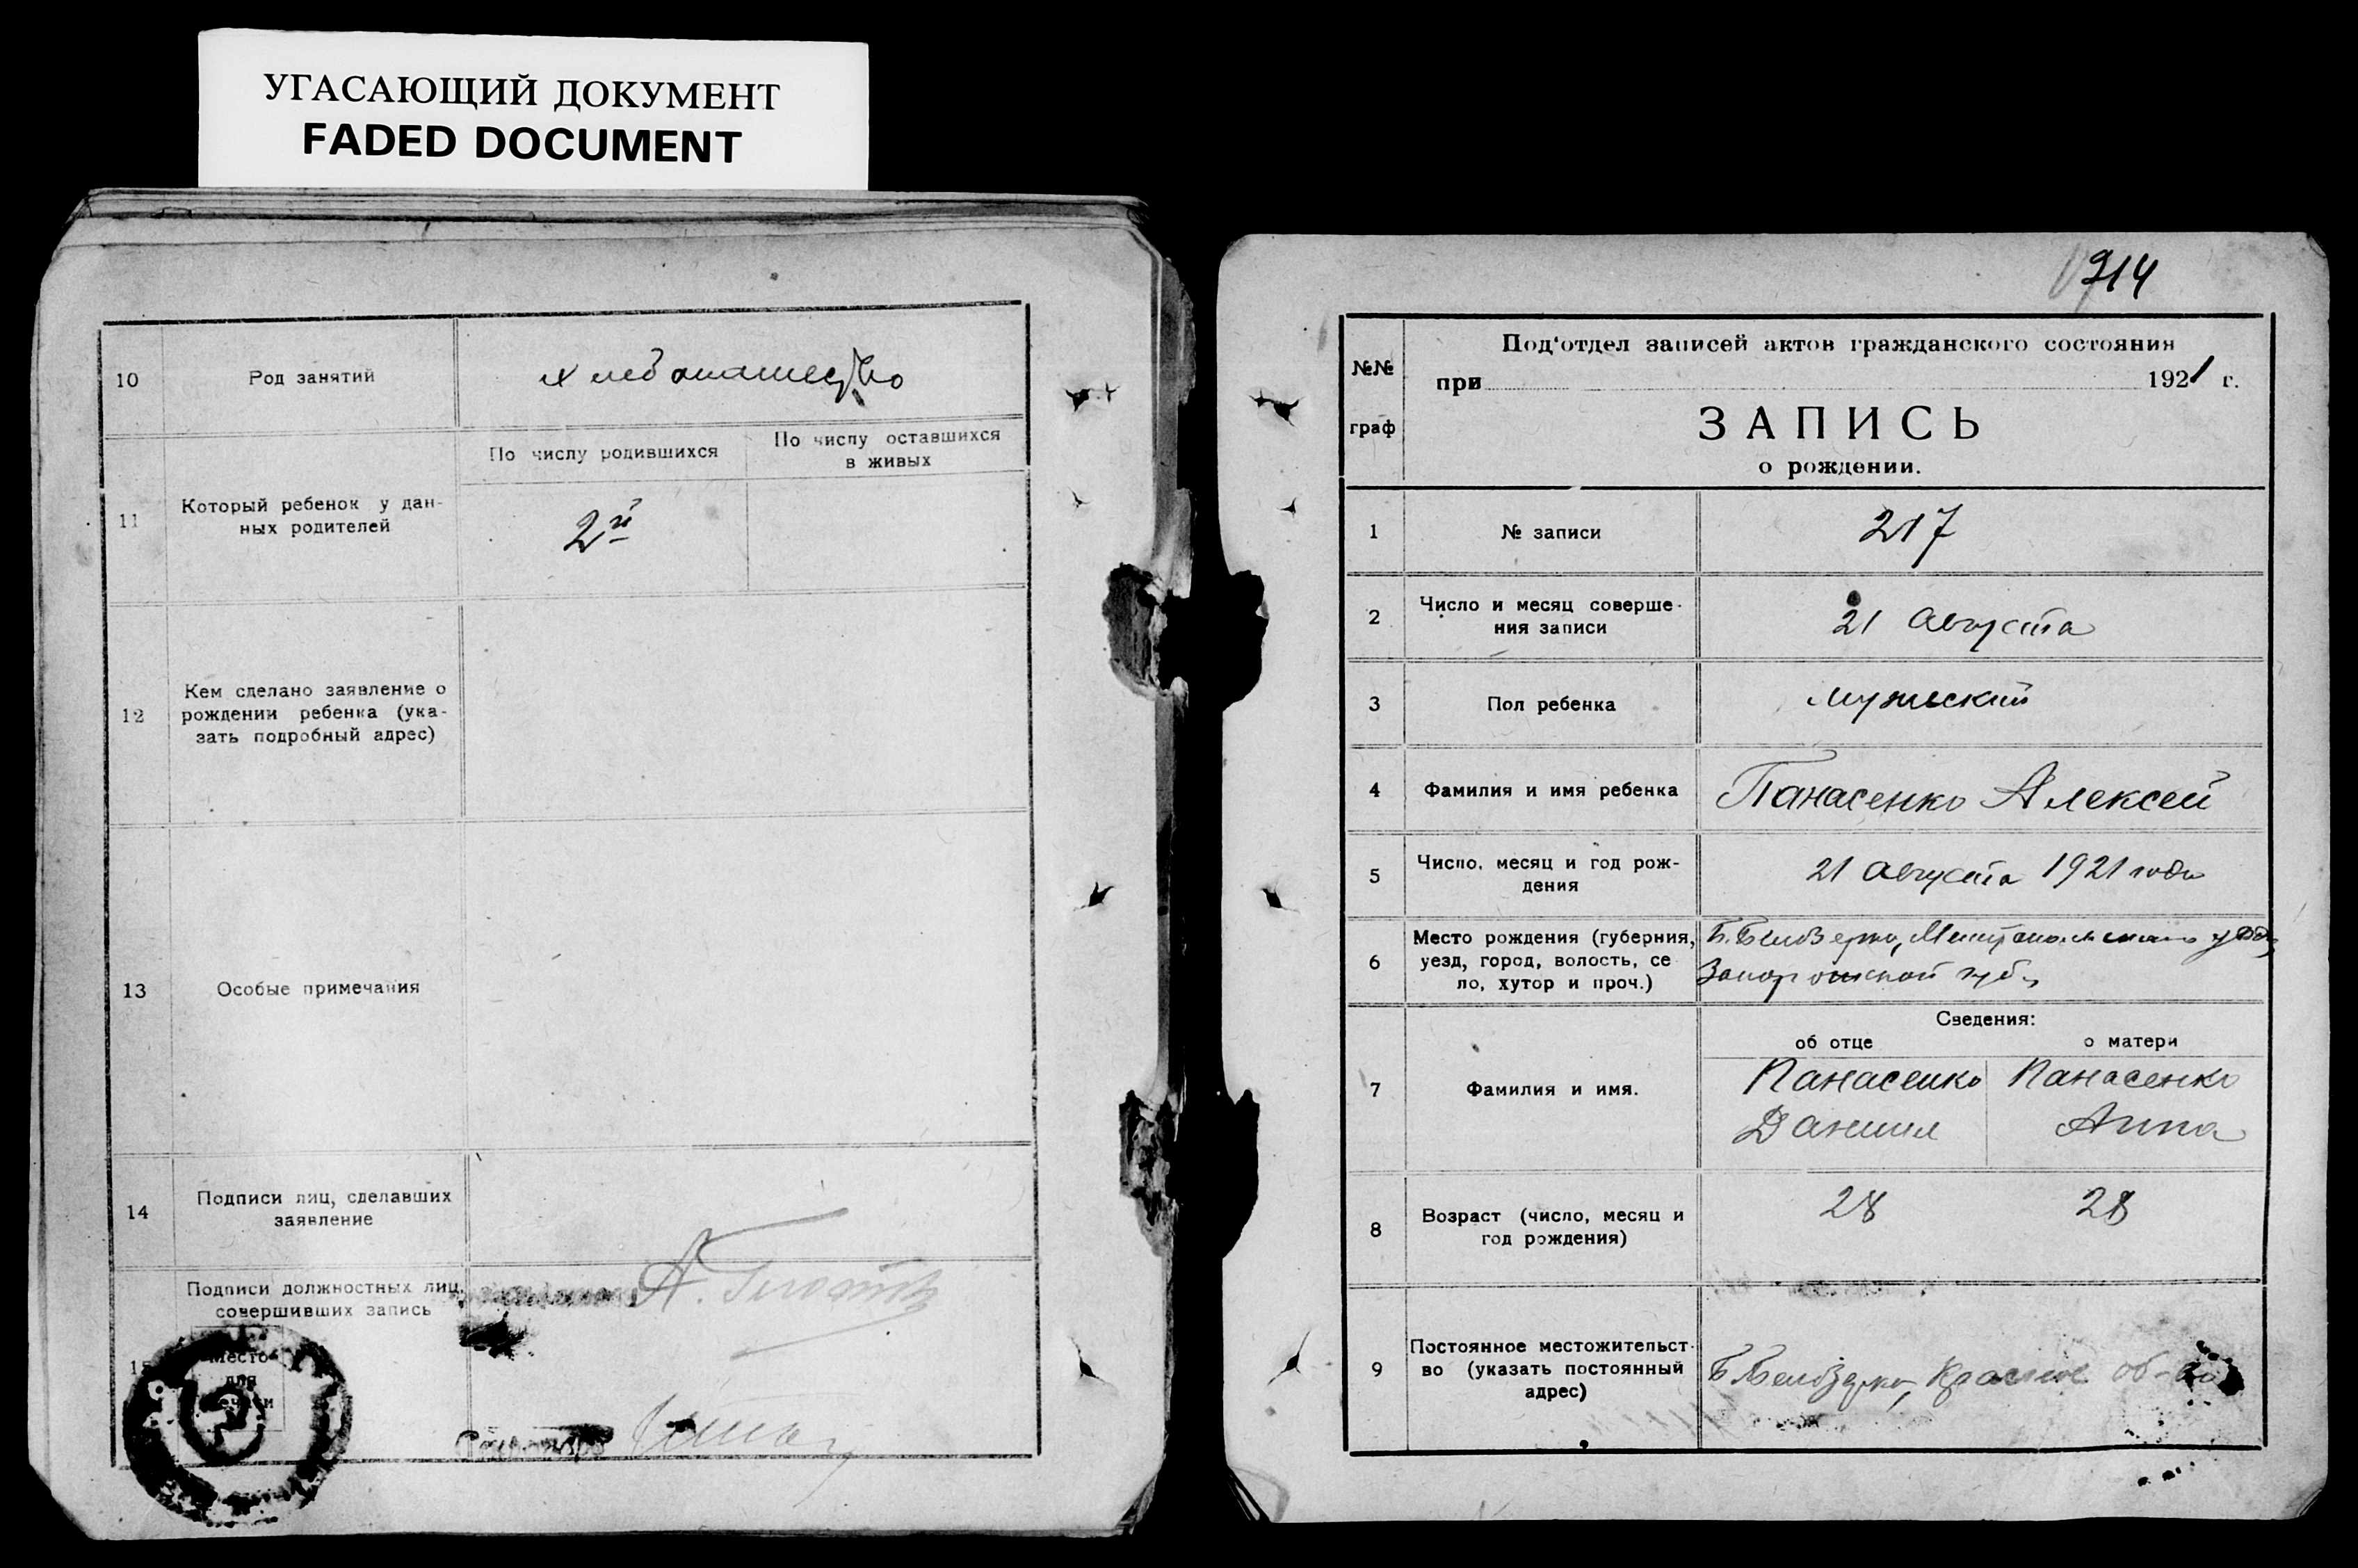 УГАСАЮЩИЙ ДОКУМЕНТ
FADED DOCUMENT
10
Род занятий
хлебопашество
11
Который ребенок у дан-
ных родителей
По числу родившихся
По числу оставшихся
в живых
2й
12
Кем сделано заявление о
рождении ребенка (ука-
зать подробный адрес)
13
Особые примечания
14
Подписи лиц, сделавших
заявление
15
Подписи должностных лиц,
совершивших запись
А.
Место
для
печати
914
№№
граф
Под'отдел записей актов гражданского состояния
при 1921 г.
ЗАПИСЬ
о рождении.
1
№ записи
217
2
Число и месяц соверше-
ния записи
21 августа
3
Пол ребенка
мужеский
4
Фамилия и имя ребенка
Панасенко Алексей
5
Число, месяц и год рож-
дения
21 августа 1921 года
6
Место рождения (губерния,
уезд, город, волость, се
ло, хутор и проч.)
Б. Белозерка, Мелитопольского уезда,
Запорожской губ.
Сведения:
об отце
о матери
7
Фамилия и имя.
Панасенко Панасенко
Даниил Анна
8
Возраст (число, месяц и
год рождения)
28 28
9
Постоянное местожительст-
во (указать постоянный
адрес)
Б. Белозерка, об-во